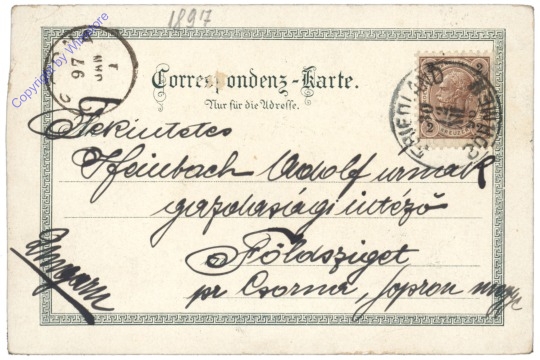 1897
Copyright by
97
JAN
Correspondenz-Karte.
Nur für die Adresse.
FRIEDLAND
Tekintetes
Adolf urnak
gazdasági intéző
Földsziget
Ungarn
pr Csorna, Sopron megye